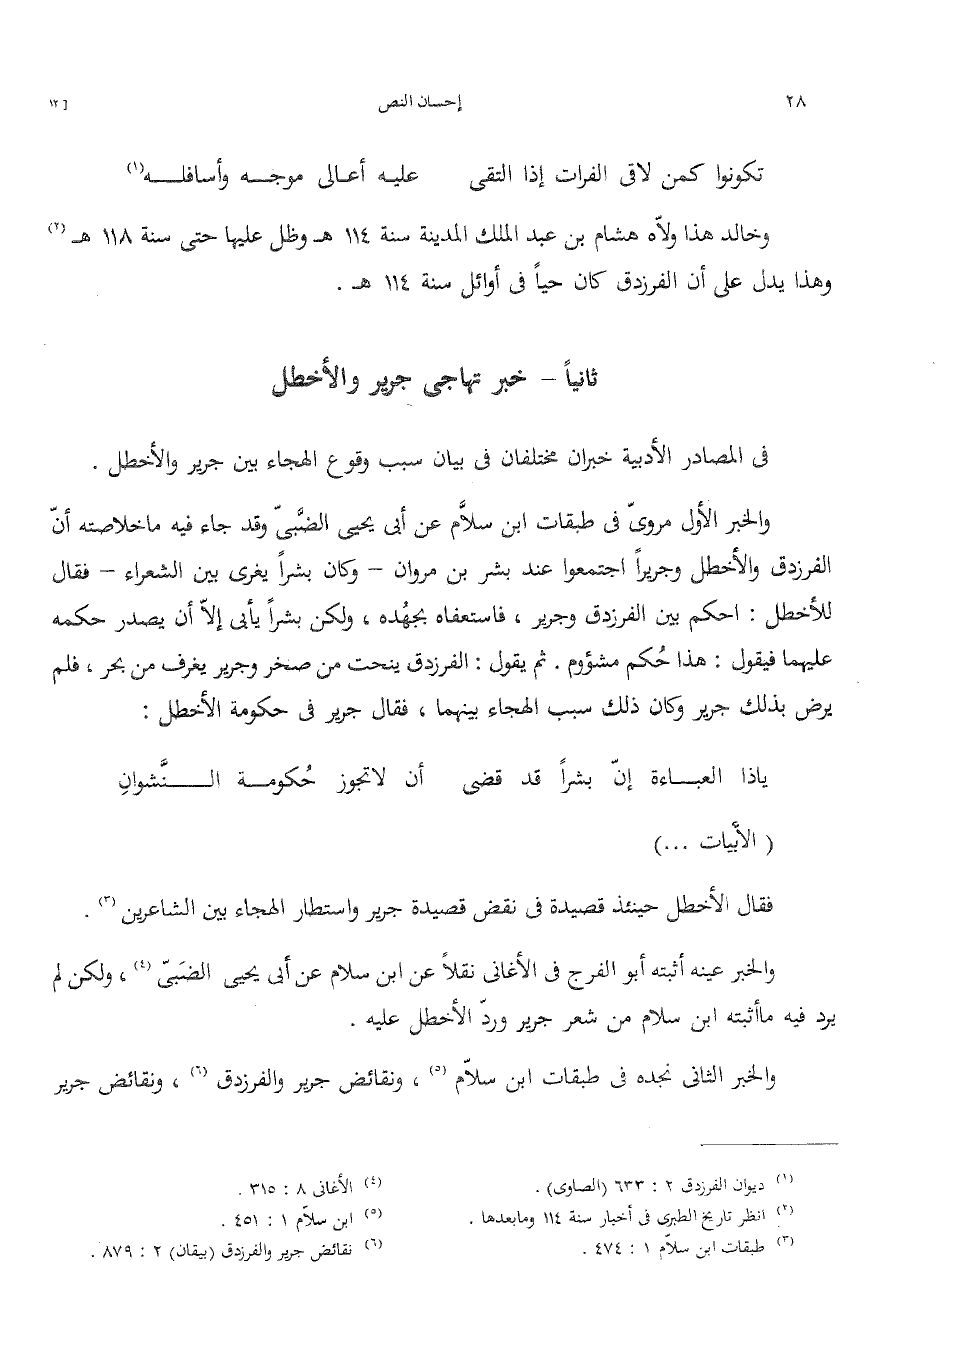 ٢٨ إحسان النص [ ١٢
تكونوا كمن لاقى الفرات إذا التقى عليـه أعـالى موجـــه وأسافلـــــه(١)
وخالد هذا ولاّه هشام بن عبد الملك المدينة سنة ١١٤ هـ وظل عليها حتى سنة ١١٨ هـ (٢)
وهذا يدل على أن الفرزدق كان حياً فى أوائل سنة ١١٤ هـ .
ثانياً – خبر تهاجى جرير والأخطل
فى المصادر الأدبية خبران مختلفان فى بيان سبب وقوع الهجاء بين جرير والأخطل .
والخبر الأول مروىّ فى طبقات ابن سلاَّم عن أبى يحيى الضَّبىّ وقد جاء فيه ماخلاصته أنّ
الفرزدق والأخطل وجريراً اجتمعوا عند بشر بن مروان – وكان بشراً يغرى بين الشعراء – فقال
للأخطل : احكم بين الفرزدق وجرير ، فاستعفاه بجهُده ، ولكن بشراً يأبى إلاّ أن يصدر حكمه
عليهما فيقول : هذا حُكم مشؤوم . ثم يقول : الفرزدق ينحت من صخر وجرير يغرف من بحر ، فلم
يرض بذلك جرير وكان ذلك سبب الهجاء بينهما ، فقال جرير فى حكومة الأخطل :
ياذا العبـــاءة إنّ بشراً قد قضى أن لاتجوز حُكومـــة الـــــنَّشوانِ
( الأبيات ...)
فقال الأخطل حينئذ قصيدة فى نقض قصيدة جرير واستطار الهجاء بين الشاعرين (٣) .
والخبر عينه أثبته أبو الفرج فى الأغانى نقلاً عن ابن سلام عن أبى يحيى الضَبىّ (٤) ، ولكن لم
يرد فيه ماأثبته ابن سلام من شعر جرير وردّ الأخطل عليه .
والخبر الثانى نجده فى طبقات ابن سلاّم (٥) ، ونقائض جرير والفرزدق (٦) ، ونقائض جرير
(١) ديوان الفرزدق ٢ : ٦٣٣ (الصاوى) .
(٢) انظر تاريخ الطبرى فى أخبار سنة ١١٤ ومابعدها .
(٣) طبقات ابن سلاّم ١ : ٤٧٤ .
(٤) الأغانى ٨ : ٣١٥ .
(٥) ابن سلاّم ١ : ٤٥١ .
(٦) نقائض جرير والفرزدق (بيقان) ٢ : ٨٧٩ .